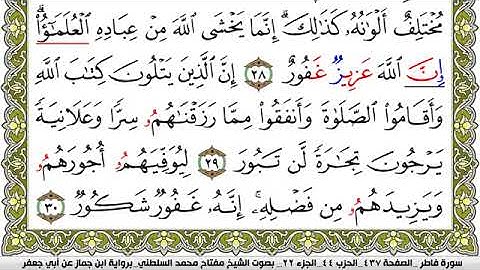 مُخْتَلِفٌ أَلْوَٰنُهُۥ كَذَٰلِكَ ۗ إِنَّمَا يَخْشَى ٱللَّهَ مِنْ عِبَادِهِ ٱلْعُلَمَـٰٓؤُا۟ ۗ
إِنَّ ٱللَّهَ عَزِيزٌ غَفُورٌ ٢٨ إِنَّ ٱلَّذِينَ يَتْلُونَ كِتَـٰبَ ٱللَّهِ
وَأَقَامُوا۟ ٱلصَّلَوٰةَ وَأَنفَقُوا۟ مِمَّا رَزَقْنَـٰهُمُۥ سِرًّا وَعَلَانِيَةً
يَرْجُونَ تِجَـٰرَةً لَّن تَبُورَ ٢٩ لِيُوَفِّيَهُمُۥ أُجُورَهُمُۥ
وَيَزِيدَهُمُۥ مِن فَضْلِهِۦٓ ۚ إِنَّهُۥ غَفُورٌ شَكُورٌ ٣٠
سورة فاطر_ الصفحة ٤٣٧_الحزب ٤٤_الجزء ٢٢_ بصوت الشيخ مفتاح محمد السلطني_برواية ابن جماز عن أبي جعفر